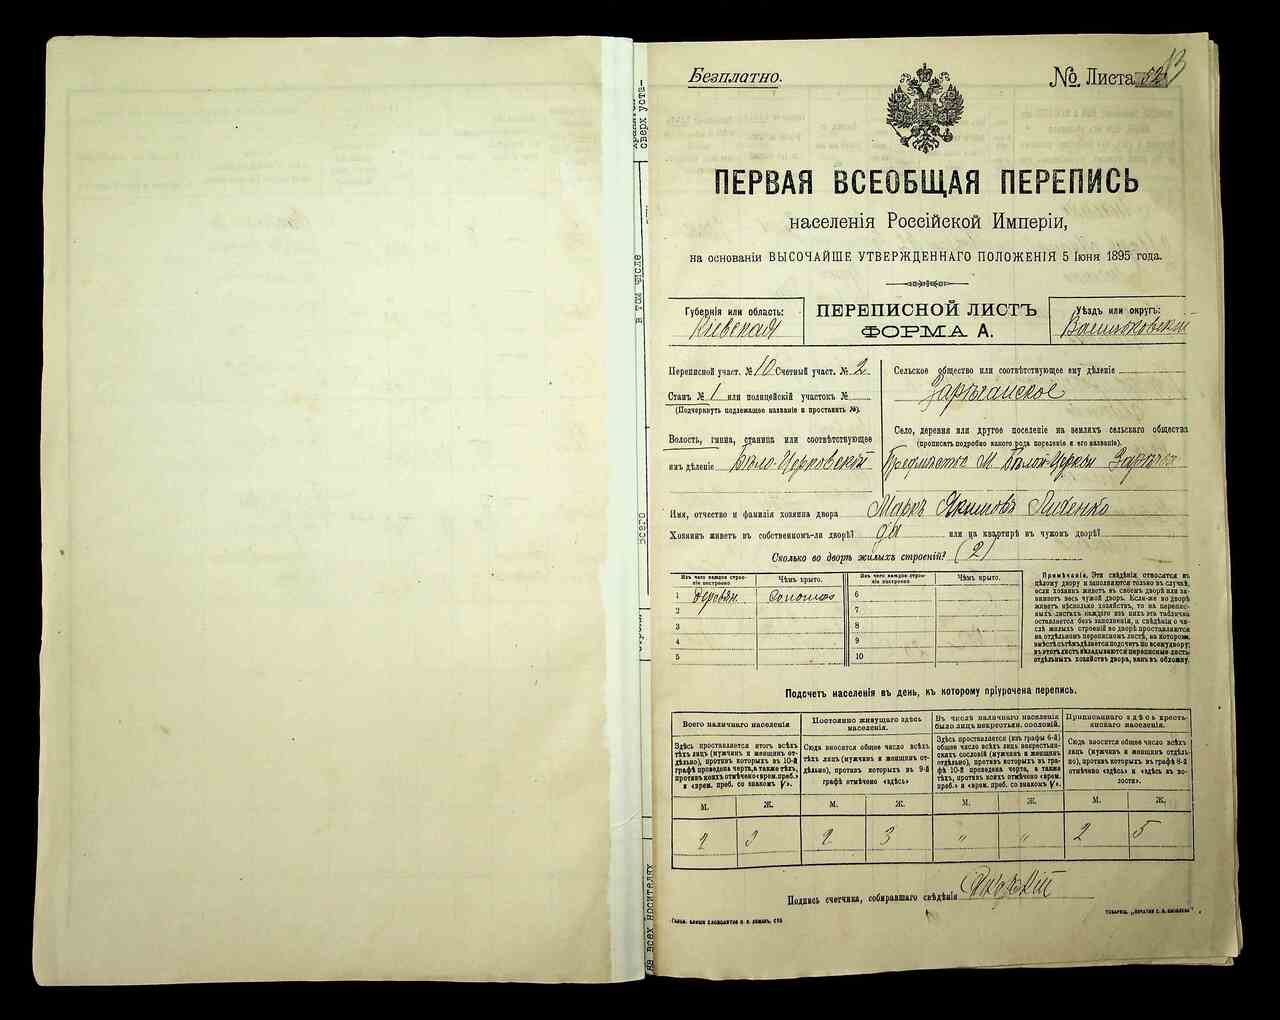 Безплатно.
№ Листа 52
13
ПЕРВАЯ ВСЕОБЩАЯ ПЕРЕПИСЬ
населенія Россійской Имперіи,
на основаніи ВЫСОЧАЙШЕ УТВЕРЖДЕННАГО ПОЛОЖЕНІЯ 5 Іюня 1895 года.
Губернія или область:
Кіевская
ПЕРЕПИСНОЙ ЛИСТЪ
ФОРМА А.
Уѣздъ или округъ:
Васильковскій
Переписной участ. № 10 Счетный участ. № 2
Станъ № 1 или полицейскій участокъ №
(Подчеркнуть подлежащее названіе и проставить №).
Волость, гмина, станица или соотвѣтствующее
имъ дѣленіе Бѣло-Церковскій
Сельское общество или соотвѣтствующее ему дѣленіе
Зарѣчанское
Село, деревня или другое поселеніе на земляхъ сельскаго общества
(прописать подробно какого рода поселеніе и его названіе).
Предмѣстье М. Бѣлой-Церкви Зарѣчье
Имя, отчество и фамилія хозяина двора Маркъ Якимовъ
Хозяинъ живетъ въ собственномъ-ли дворѣ? да или на квартирѣ въ чужомъ дворѣ?
Сколько во дворѣ жилыхъ строеній? (2)
Изъ чего каждое строеніе построено. Чѣмъ крыто. Изъ чего каждое строеніе построено. Чѣмъ крыто.
1 деревян. соломою 6
2 7
3 8
4 9
5 10
Примѣчаніе. Эти свѣдѣнія относятся къ
цѣлому двору и заполняются только въ случаѣ,
если хозяинъ живетъ въ своемъ дворѣ или за-
нимаетъ весь чужой дворъ. Если-же во дворѣ
живетъ нѣсколько хозяйствъ, то на перепис-
ныхъ листахъ каждаго изъ нихъ эта табличка
оставляется безъ заполненія, а свѣдѣнія о чи-
слѣ жилыхъ строеній во дворѣ проставляются
на отдѣльномъ переписномъ листѣ, на которомъ
вмѣстѣ съ тѣмъ дѣлается подсчетъ по всему двору;
въ этотъ листъ вкладываются переписные листы
отдѣльныхъ хозяйствъ двора, какъ въ обложку.
Подсчетъ населенія въ день, къ которому пріурочена перепись.
Всего наличнаго населенія
Здѣсь проставляется итогъ всѣхъ
лицъ (мужчинъ и женщинъ от-
дѣльно), противъ которыхъ въ 10-й
графѣ проведена черта, а также тѣхъ,
противъ коихъ отмѣчено «врем. преб.»
и «врем. преб. со знакомъ V».
Постоянно живущаго здѣсь
населенія.
Сюда вносится общее число всѣхъ
лицъ (мужчинъ и женщинъ от-
дѣльно), противъ которыхъ въ 9-й
графѣ отмѣчено «здѣсь»
Въ числѣ наличнаго населенія
было лицъ некрестьян. сословій.
Здѣсь проставляется (изъ графы 6-й)
общее число всѣхъ лицъ некрестьян-
скихъ сословій (мужчинъ и женщинъ
отдѣльно), противъ которыхъ въ гра-
фѣ 10-й проведена черта, а также
тѣхъ, противъ коихъ отмѣчено «врем.
преб.» и «врем. преб. со знакомъ V».
Приписаннаго здѣсь кресть-
янскаго населенія.
Сюда вносится общее число всѣхъ
лицъ (мужчинъ и женщинъ отдѣль-
но), противъ которыхъ въ графѣ 8-й
отмѣчено «здѣсь» и «здѣсь въ во-
лости».
М. Ж. М. Ж. М. Ж. М. Ж.
2 3 2 3 " " 2 5
Подпись счетчика, собиравшаго свѣдѣнія
сверх уста-
в том числе
всего
на всех носителях